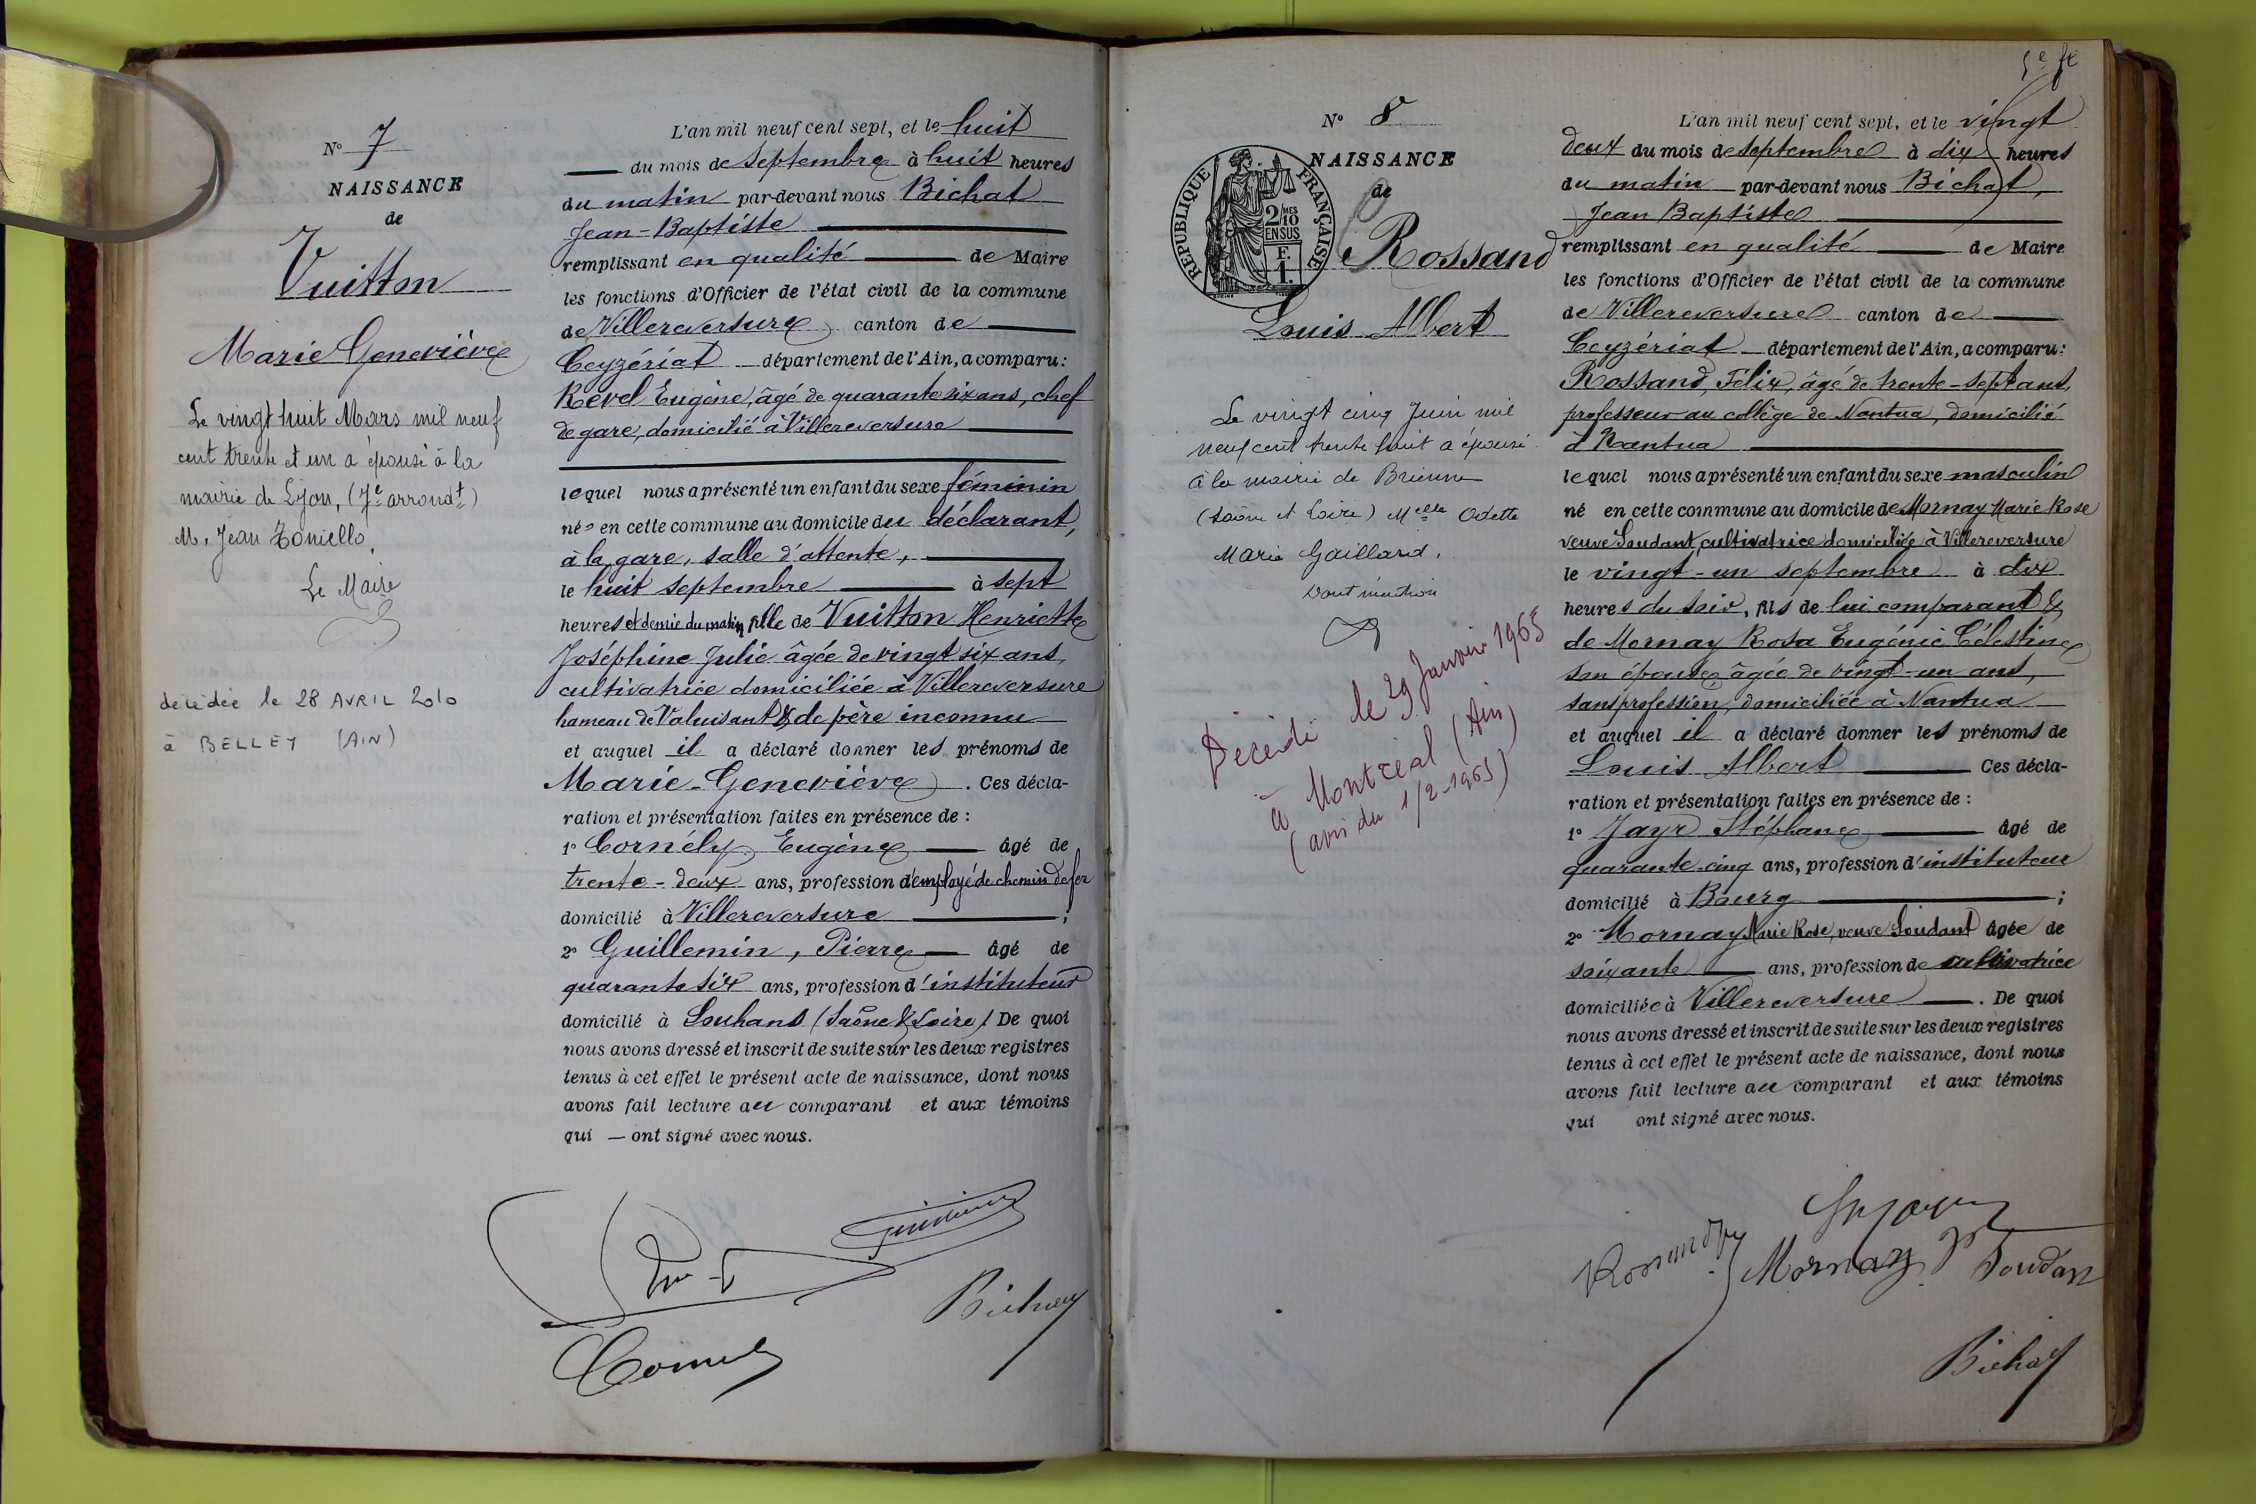 N° 7
NAISSANCE
de
Vuitton
Marie Geneviève
Le vingt huit Mars mil neuf
cent trente et un a épousé à la
mairie de Lyon, (7e arrondt)
M. Jean Toniello.
Le Maire
décédée le 28 AVRIL 2010
à BELLEY (AIN)
L'an mil neuf cent sept, et le huit
du mois de septembre à huit heures
du matin par-devant nous Bichat
Jean-Baptiste
remplissant en qualité de Maire
les fonctions d'Officier de l'état civil de la commune
de Villereversure canton de
Ceyzériat département de l'Ain, a comparu:
Revel Eugène, âgé de quarante six ans, chef
de gare, domicilié à Villereversure
lequel nous a présenté un enfant du sexe féminin
née en cette commune au domicile du déclarant,
à la gare, salle d'attente,
le huit septembre à sept
heures et demie du matin fille de Vuitton Henriette
Joséphine Julie âgée de vingt six ans,
cultivatrice domiciliée à Villereversure
hameau de Valuisant & de père inconnu
et auquel il a déclaré donner les prénoms de
Marie-Geneviève. Ces décla-
ration et présentation faites en présence de :
1° Cornély Eugène âgé de
trente-deux ans, profession d'employé de chemin de fer
domicilié à Villereversure ;
2° Guillemin, Pierre âgé de
quarante six ans, profession d'instituteur
domicilié à Louhans (Saône & Loire). De quoi
nous avons dressé et inscrit de suite sur les deux registres
tenus à cet effet le présent acte de naissance, dont nous
avons fait lecture au comparant et aux témoins
qui — ont signé avec nous.
Guillemin
Bichat
Cornély
5e ft
N° 8
NAISSANCE
de
RÉPUBLIQUE FRANÇAISE
2/10 MES
EN SUS
F.
1.
Rossand
Louis Albert
Le vingt cinq Juin mil
neuf cent trente huit a épousé
à la mairie de Brienne
(Saône et Loire) Melle Odette
Marie Gaillard.
Dont mention
Décédé le 29 Janvier 1965
à Montréal (Ain)
(avis du 1/2-1965)
L'an mil neuf cent sept, et le vingt
deux du mois de septembre à dix heures
du matin par-devant nous Bichat,
Jean Baptiste
remplissant en qualité de Maire
les fonctions d'Officier de l'état civil de la commune
de Villereversure canton de
Ceyzériat département de l'Ain, a comparu:
Rossand, Félix, âgé de trente-sept ans,
professeur au collège de Nantua, domicilié
à Nantua
lequel nous a présenté un enfant du sexe masculin
né en cette commune au domicile de Mornay Marie Rose
veuve Soudant, cultivatrice domiciliée à Villereversure
le vingt-un septembre à dix
heures du soir, fils de lui comparant &
de Mornay Rosa Eugénie Célestine
son épouse, âgée de vingt-un ans,
sans profession, domiciliée à Nantua
et auquel il a déclaré donner les prénoms de
Louis Albert Ces décla-
ration et présentation faites en présence de :
1° Jayr Stéphane âgé de
quarante-cinq ans, profession d'instituteur
domicilié à Bourg ;
2° Mornay Marie Rose, veuve Soudant âgée de
soixante ans, profession de cultivatrice
domiciliée à Villereversure. De quoi
nous avons dressé et inscrit de suite sur les deux registres
tenus à cet effet le présent acte de naissance, dont nous
avons fait lecture au comparant et aux témoins
qui ont signé avec nous.
Rossand
Mornay
Soudan
Bichat